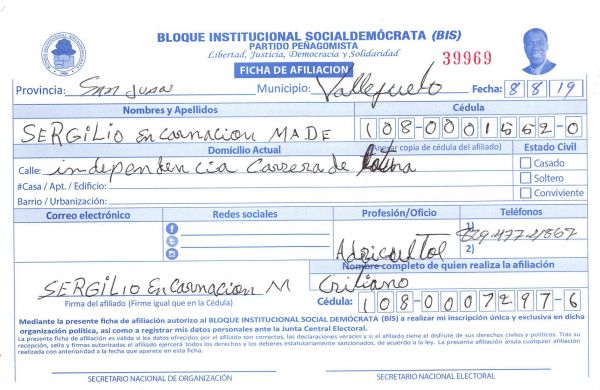 BLOQUE INSTITUCIONAL SOCIALDEMÓCRATA (BIS)
PARTIDO PEÑAGOMISTA
Libertad, Justicia, Democracia y Solidaridad
39969
FICHA DE AFILIACION
Provincia: San Juan Municipio: Vallejuelo Fecha: 8 8 19
Nombres y Apellidos Cédula
SERGILIO Encarnacion MADE 108-0001552-0
Domicilio Actual (Anexar copia de cédula del afiliado) Estado Civil
Calle: independencia Carrera de Casado
#Casa / Apt. / Edificio: Soltero
Barrio / Urbanización: Conviviente
Correo electrónico Redes sociales Profesión/Oficio Teléfonos
1)
2)
Nombre completo de quien realiza la afiliación
SERGILIO Encarnacion M Critiano
Firma del afiliado (Firme igual que en la Cédula) Cédula: 108-0007297-6
Mediante la presente ficha de afiliación autorizo al BLOQUE INSTITUCIONAL SOCIAL DEMÓCRATA (BIS) a realizar mi inscripción única y exclusiva en dicha
organización política, así como a registrar mis datos personales ante la Junta Central Electoral.
La presente ficha de afiliación es válida si los datos ofrecidos por el afiliado son correctas, las declaraciones veraces y si el afiliado tiene el disfrute de sus derechos civiles y políticos. Tras su
recepción, sello y firmas autorizadas el afiliado ejercerá todos los derechos y los deberes estatutariamente sancionados, de acuerdo a la ley. La presente afiliación anula cualquier afiliación
realizada con anterioridad a la fecha que aparece en esta ficha.
SECRETARIO NACIONAL DE ORGANIZACIÓN SECRETARIO NACIONAL ELECTORAL